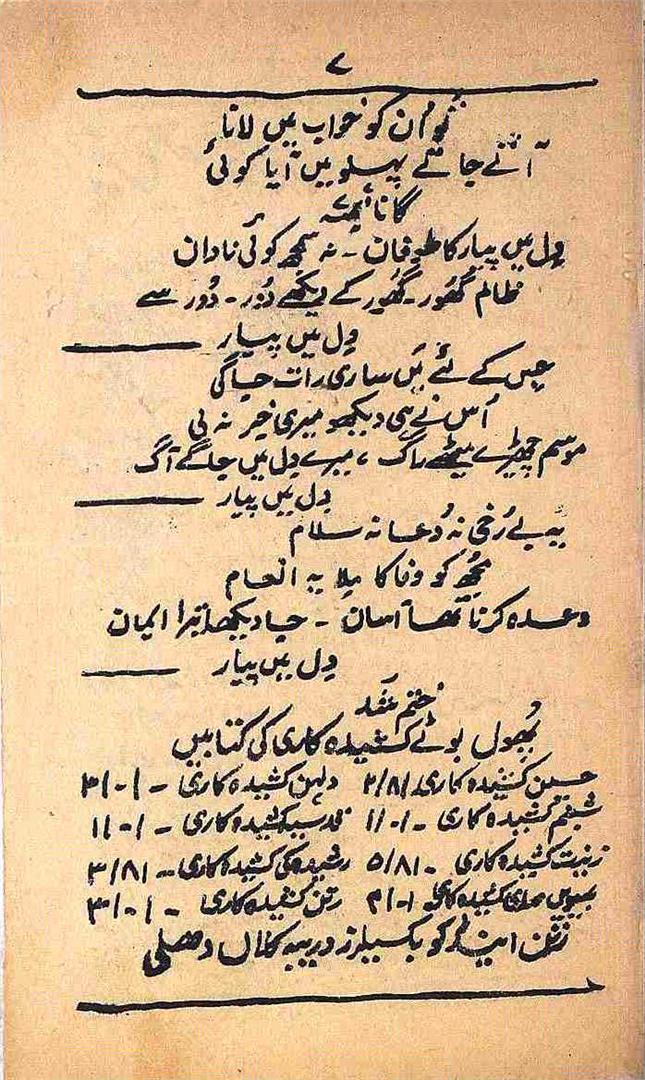 ۷
تُو اُن کو خواب میں لانا
آتے جاتے پہلو میں آیا کوئی
گانا
دِل میں پیار کا طوفان ۔ نہ سمجھ کوئی نادان
ظالم گھُور۔ گھُور کے دیکھے دُور۔ دُور سے
دِل میں پیار
جس کے لئے میں ساری رات جاگی
اُس نے ہی دیکھو میری خبر نہ لی
موسم چھیڑے میٹھے راگ ، میرے دِل میں جاگے آگ
دِل میں پیار
یہ بے رُخی نہ دُعا نہ سلام
مجھُ کو وفا کا مِلا یہ انعام
وعدہ کرنا تھا آسان ۔ جا دیکھا تیرا ایمان
دِل میں پیار
ختم شُد
پھُول بوٹے کشیدہ کاری کی کتابیں
حسین کشیدہ کاری ۲/۸/ دلہن کشیدہ کاری ۔ ۳/۰/
شبنم کشیدہ کاری ۔ ۱/۰/ کشیدہ کاری ۔ ۱/۰/
زینت کشیدہ کاری ۔ ۵/۸/ رشیدہ کی کشیدہ کاری ۔ ۳/۸/
کشیدہ کاری رتن کشیدہ کاری ۔ ۳/۰/
رتن اینڈ کو بکسیلرز دریبہ کلاں دھلی